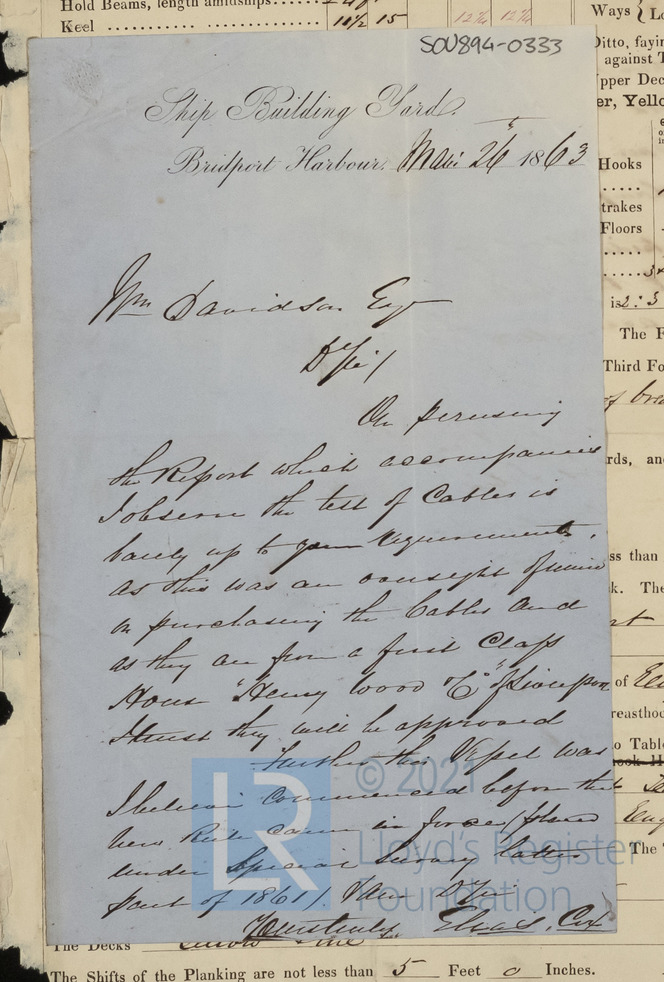 Hold Beams, length amidships
Keel 11 1/2 15 12 1/2 12 1/2
Ways
SOU894-0333
Ship Building Yard.
Bridport Harbour. 26 1863
Wm Davidson Esq
D Sir/
On perusing
the Report which accompanies
I observe the test of Cables is
barely up to your requirements,
as this was an oversight of mine
in purchasing the Cables and
as they are from a first Class
House "Henry Wood & Co" of Liverpool
I trust they will be approved
Further this Vessel was
I believe commenced before the
new Rule came in force (
under Special Survey latter
part of 1861/. I am D Sir
Yours truly, Elias S. Cox
© 2021
LR
Lloyd's Register
Foundation
Ditto,
against
pper Dec
er, Yello
Hooks
trakes
Floors
is 2:3
The F
Third Fo
of
rds, an
ss than
k. The
rt
of
reastho
o Tabl
The
The Decks
The Shifts of the Planking are not less than 5 Feet 0 Inches.